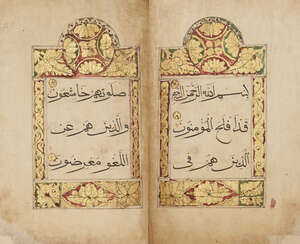 بسم الله الرحمن الرحيم
قد افلح المؤمنون
الذين هم في
صلوتهم خاشعون
والذين هم عن
اللغو معرضون